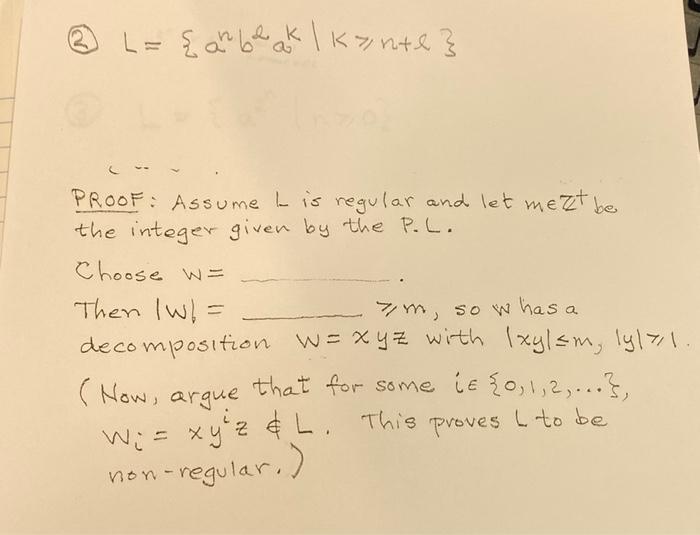 ② L = { aⁿ bˡ aᵏ | K ⩾ n+l }
PROOF: Assume L is regular and let m∈Z⁺ be
the integer given by the P.L.
Choose w = ________.
Then |w| = ________ ⩾ m, so w has a
decomposition w = xyz with |xy| ≤ m, |y| ⩾ 1.
(Now, argue that for some i∈ {0,1,2,...},
wᵢ = xyⁱz ∉ L. This proves L to be
non-regular.)